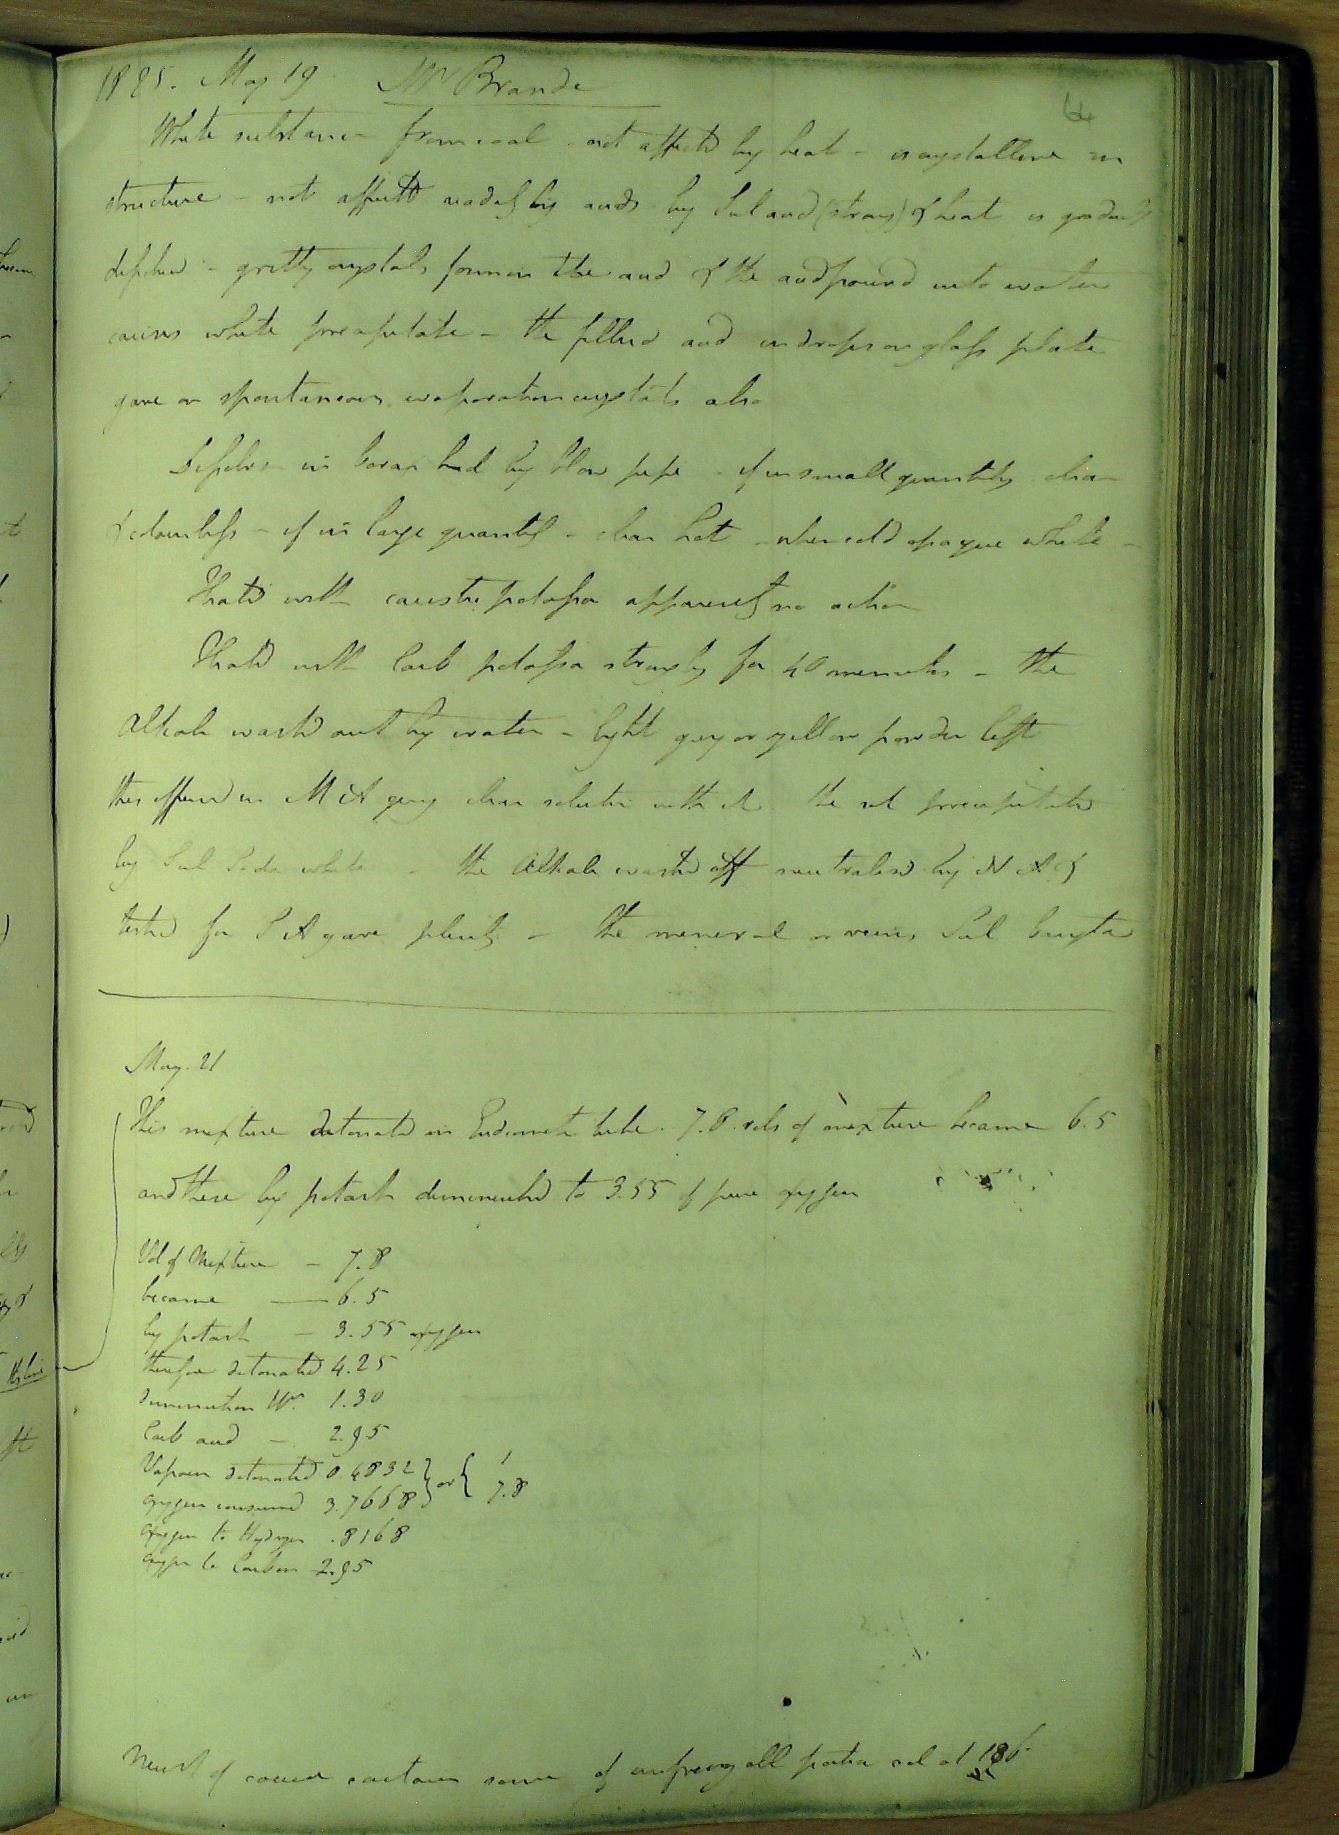 1825. May 19 Mr Brande
64
White substance from coal - not affected by heat - is crystalline in
structure - not affected readily by acids by Sul acid (strong) & heat is gradually
dissolved - gritty crystals form in the acid & the acid poured into water
causes white precipitate - the filtered acid in drops on glass plate
gave on spontaneous evaporation crystals also
Dissolves in borax bead by blow pipe - if in small quantity clear
& colourless - if in large quantity - clear hot - when cold opaque white -
Heated with caustic potassa apparently no action
Heated with Carb potassa strongly for 40 minutes - the
Alkali washed out by water - light grey or yellow powder left
this dissolved in M A giving clear solution with it the sol precipitated
by Sul Soda white - the Alkali washed off neutralised by N A &
tested for S A gave plenty - the mineral is Sul baryta
May. 21
This mixture detonated in Eudiometer tube. 7.8 vols of mixture became 6.5
and these by potash diminished to 3.55 of pure oxygen
Vol of Mixture - 7.8
became - 6.5
by potash - 3.55 oxygen
therefore detonated 4.25
diminution 1.30
Carb acid - 2.95
Vapour detonated 0.4832 } or { 1
oxygen consumed 3.7668 7.8
oxygen to Hydrogen .8168
oxygen to Carbon 2.95
Must of course contain some of unfreezable portion vol at 186